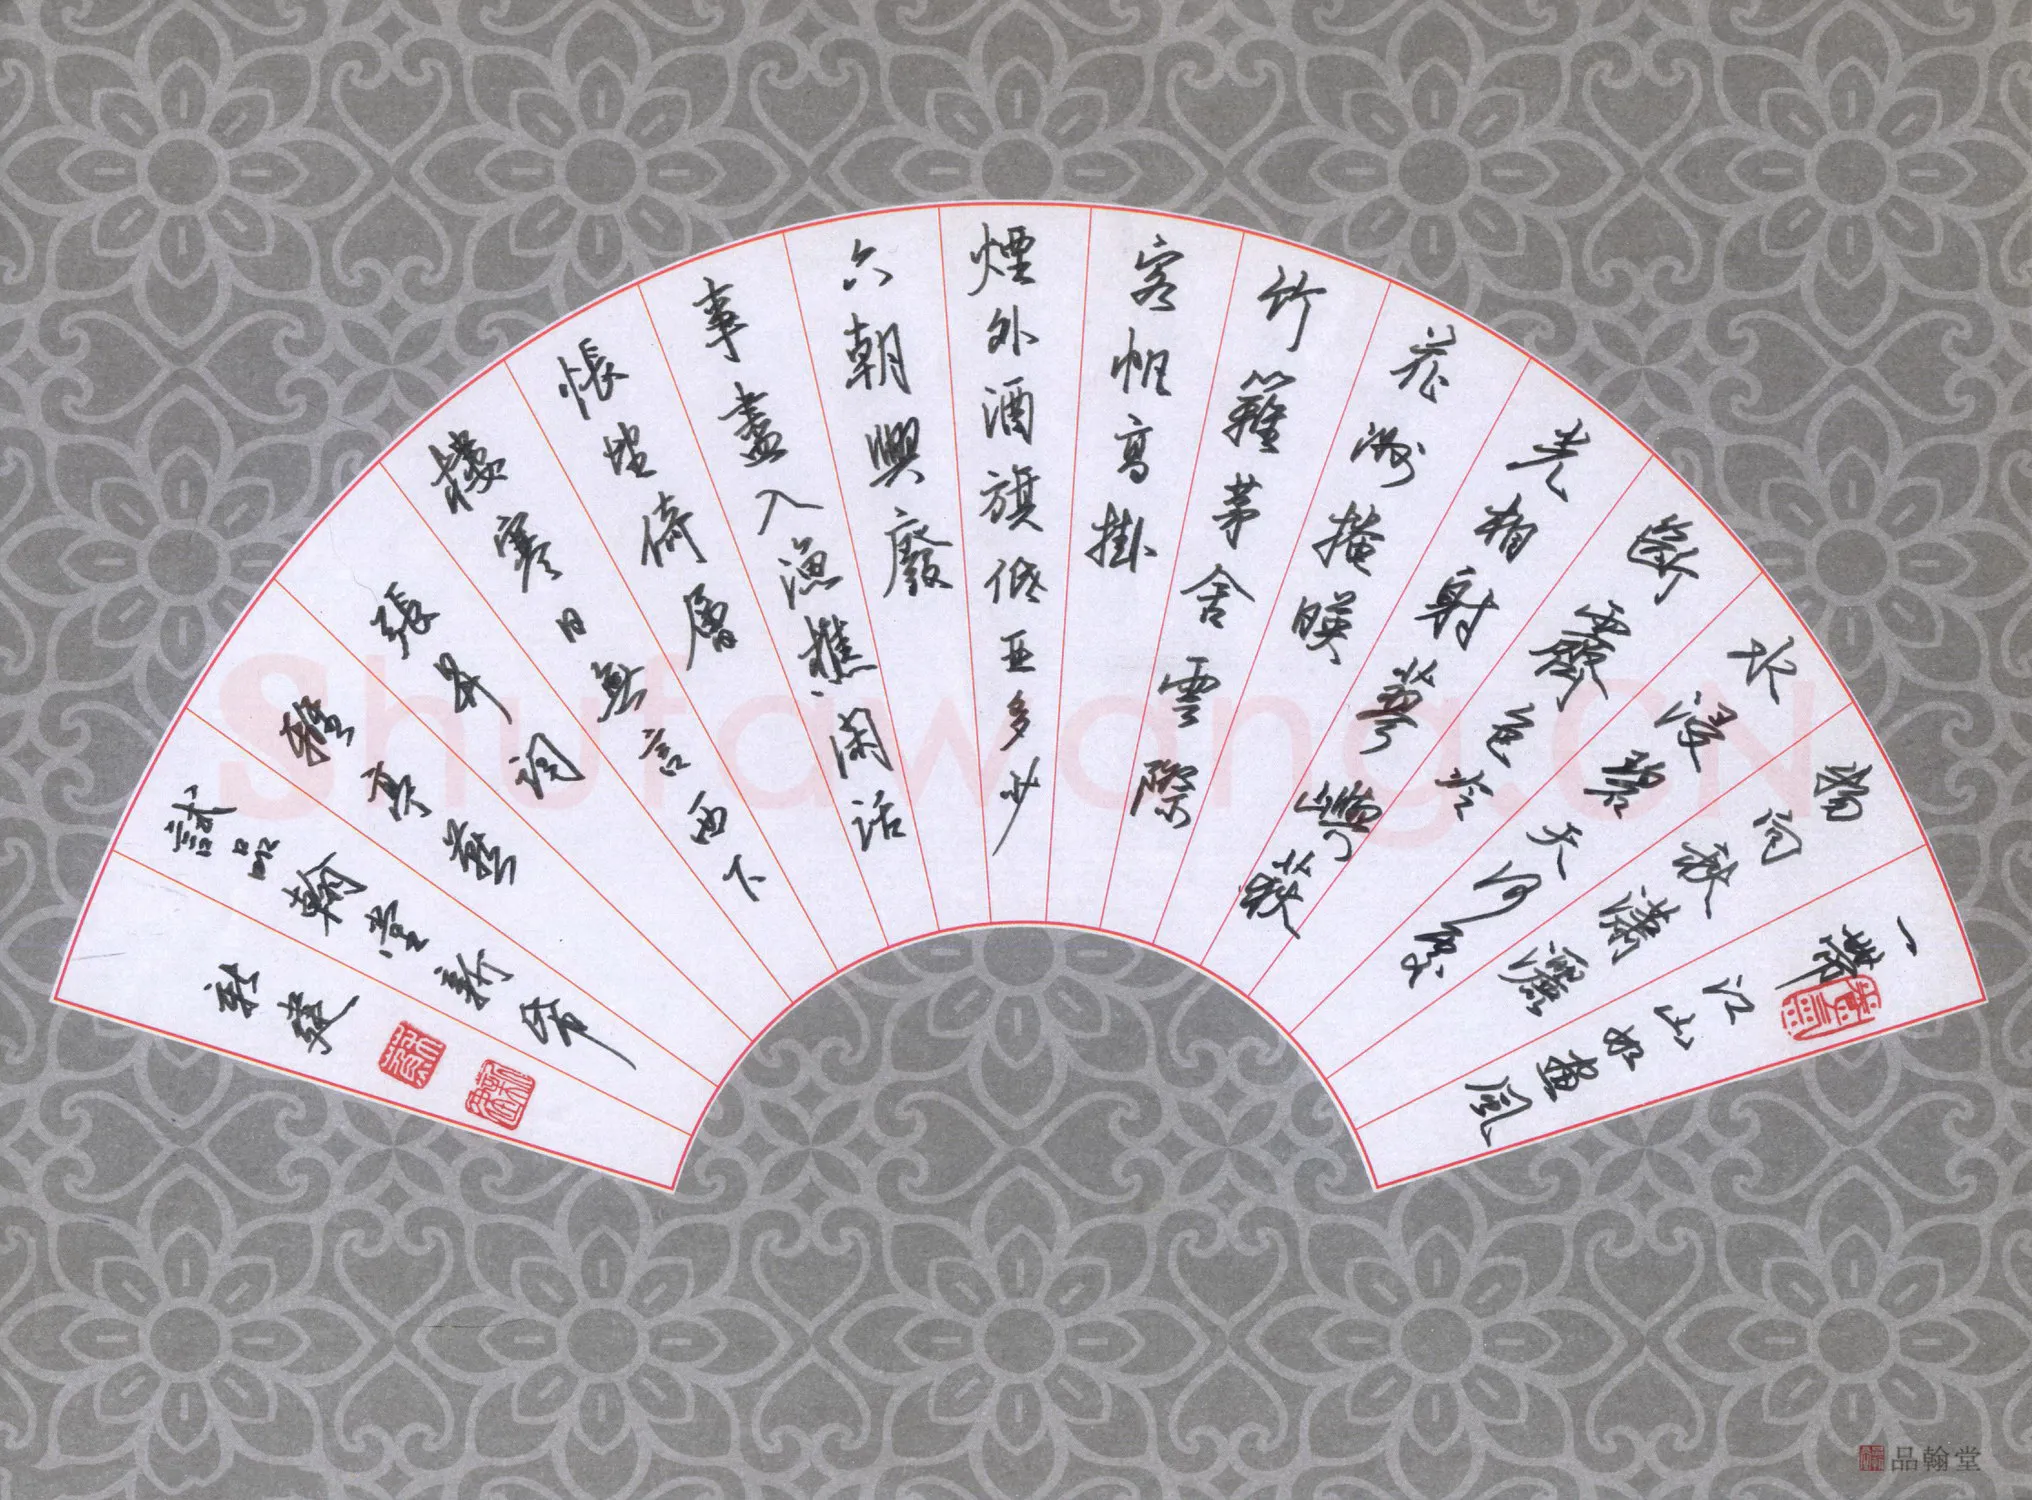 一帶江山如畫風
物向秋瀟灑
水浸碧天何處
斷霽色冷
光相射蓼嶼荻
花洲掩暎
竹籬茅舍雲際
客帆高掛
煙外酒旗低亞多少
六朝興廢
事盡入漁樵閑話
悵望倚層
樓寒日無言西下
張昇詞
離亭燕
試品翰堂新帋
Shufawang.CN
品翰堂